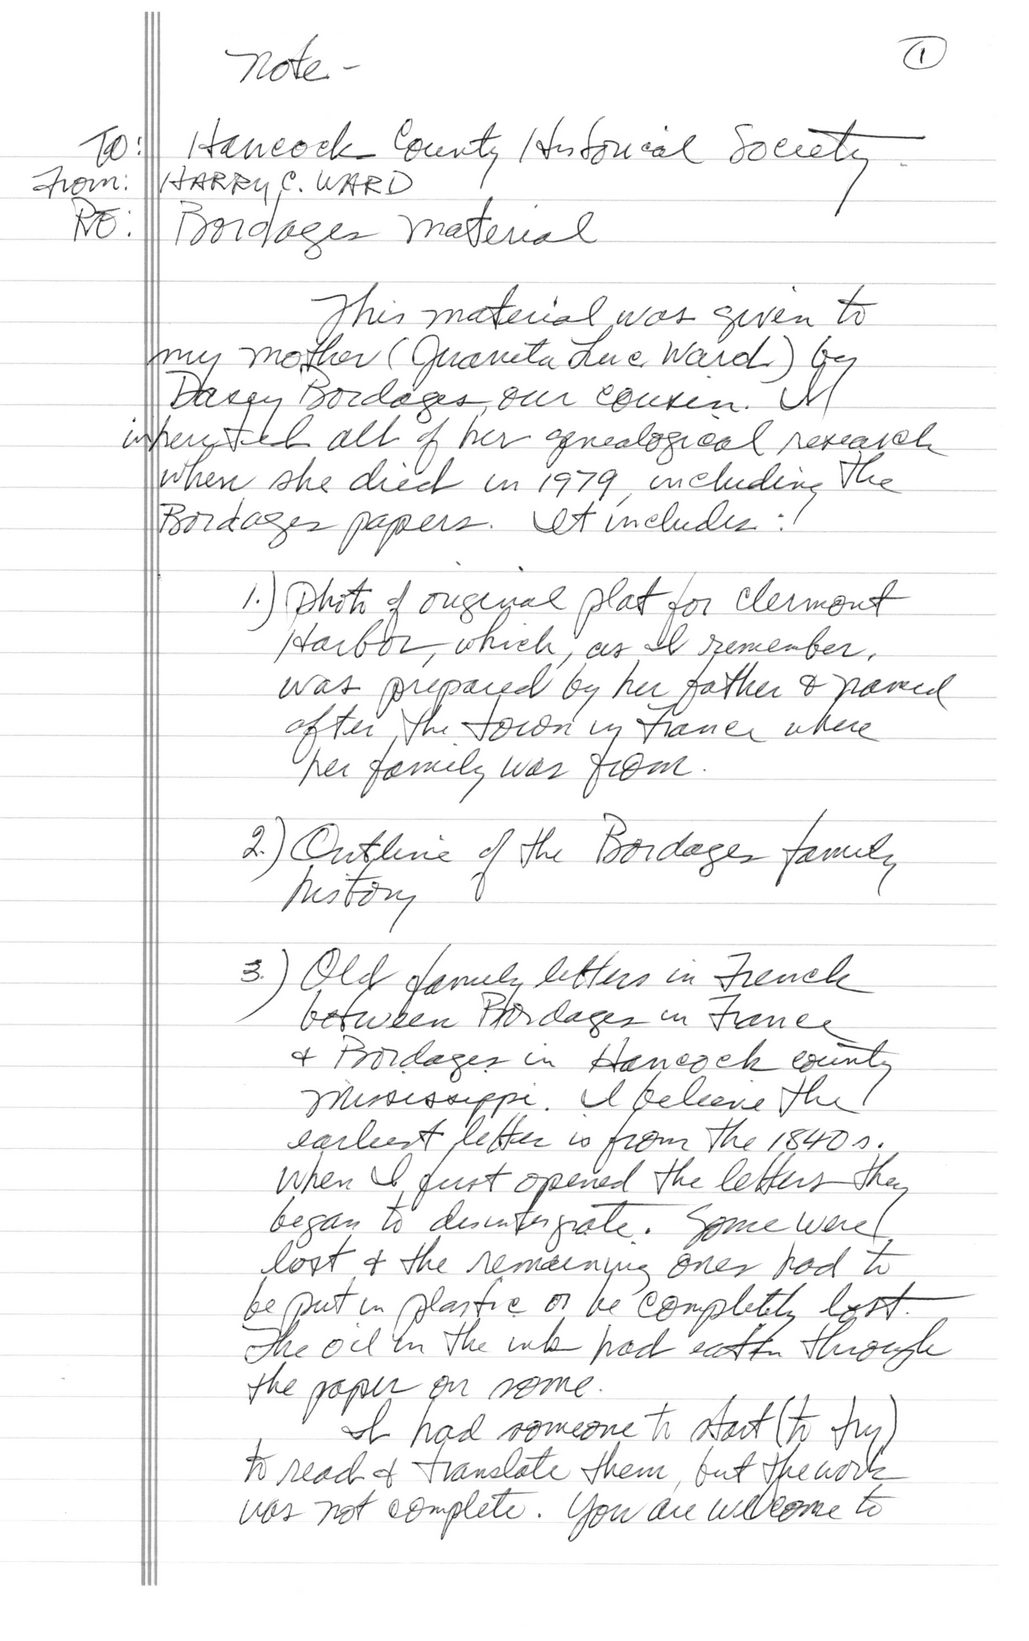 Note -
1
TO: Hancock County Historical Society
From: HARRY C. WARD
RE: Bordages material
This material was given to
my mother (Juanita Luc Ward) by
Bordages, our cousin. I
inherited all of her genealogical research
when she died in 1979, including the
Bordages papers. It includes:
1.) Photo of original plat for Clermont
Harbor, which, as I remember,
was prepared by her father & named
after the town in France where
her family was from.
2.) Outline of the Bordages family
history
3.) Old family letters in French
between Bordages in France
& Bordages in Hancock county
Mississippi. I believe the
earliest letter is from the 1840s.
When I first opened the letters they
began to disintegrate. Some were
lost & the remaining ones had to
be put in plastic or be completely lost.
The oil in the ink had eaten through
the paper on some.
I had someone to start (to try)
to read & translate them, but the work
was not complete. You are welcome to